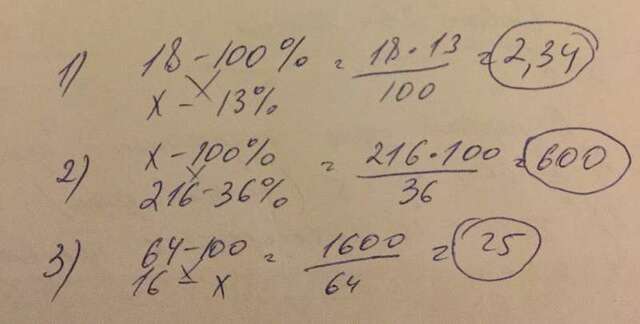 1) 18 - 100% = 18 · 13 / 100 = 2,34
x - 13%
2) x - 100% = 216 · 100 / 36 = 600
216 - 36%
3) 64 - 100 = 1600 / 64 = 25
16 - x